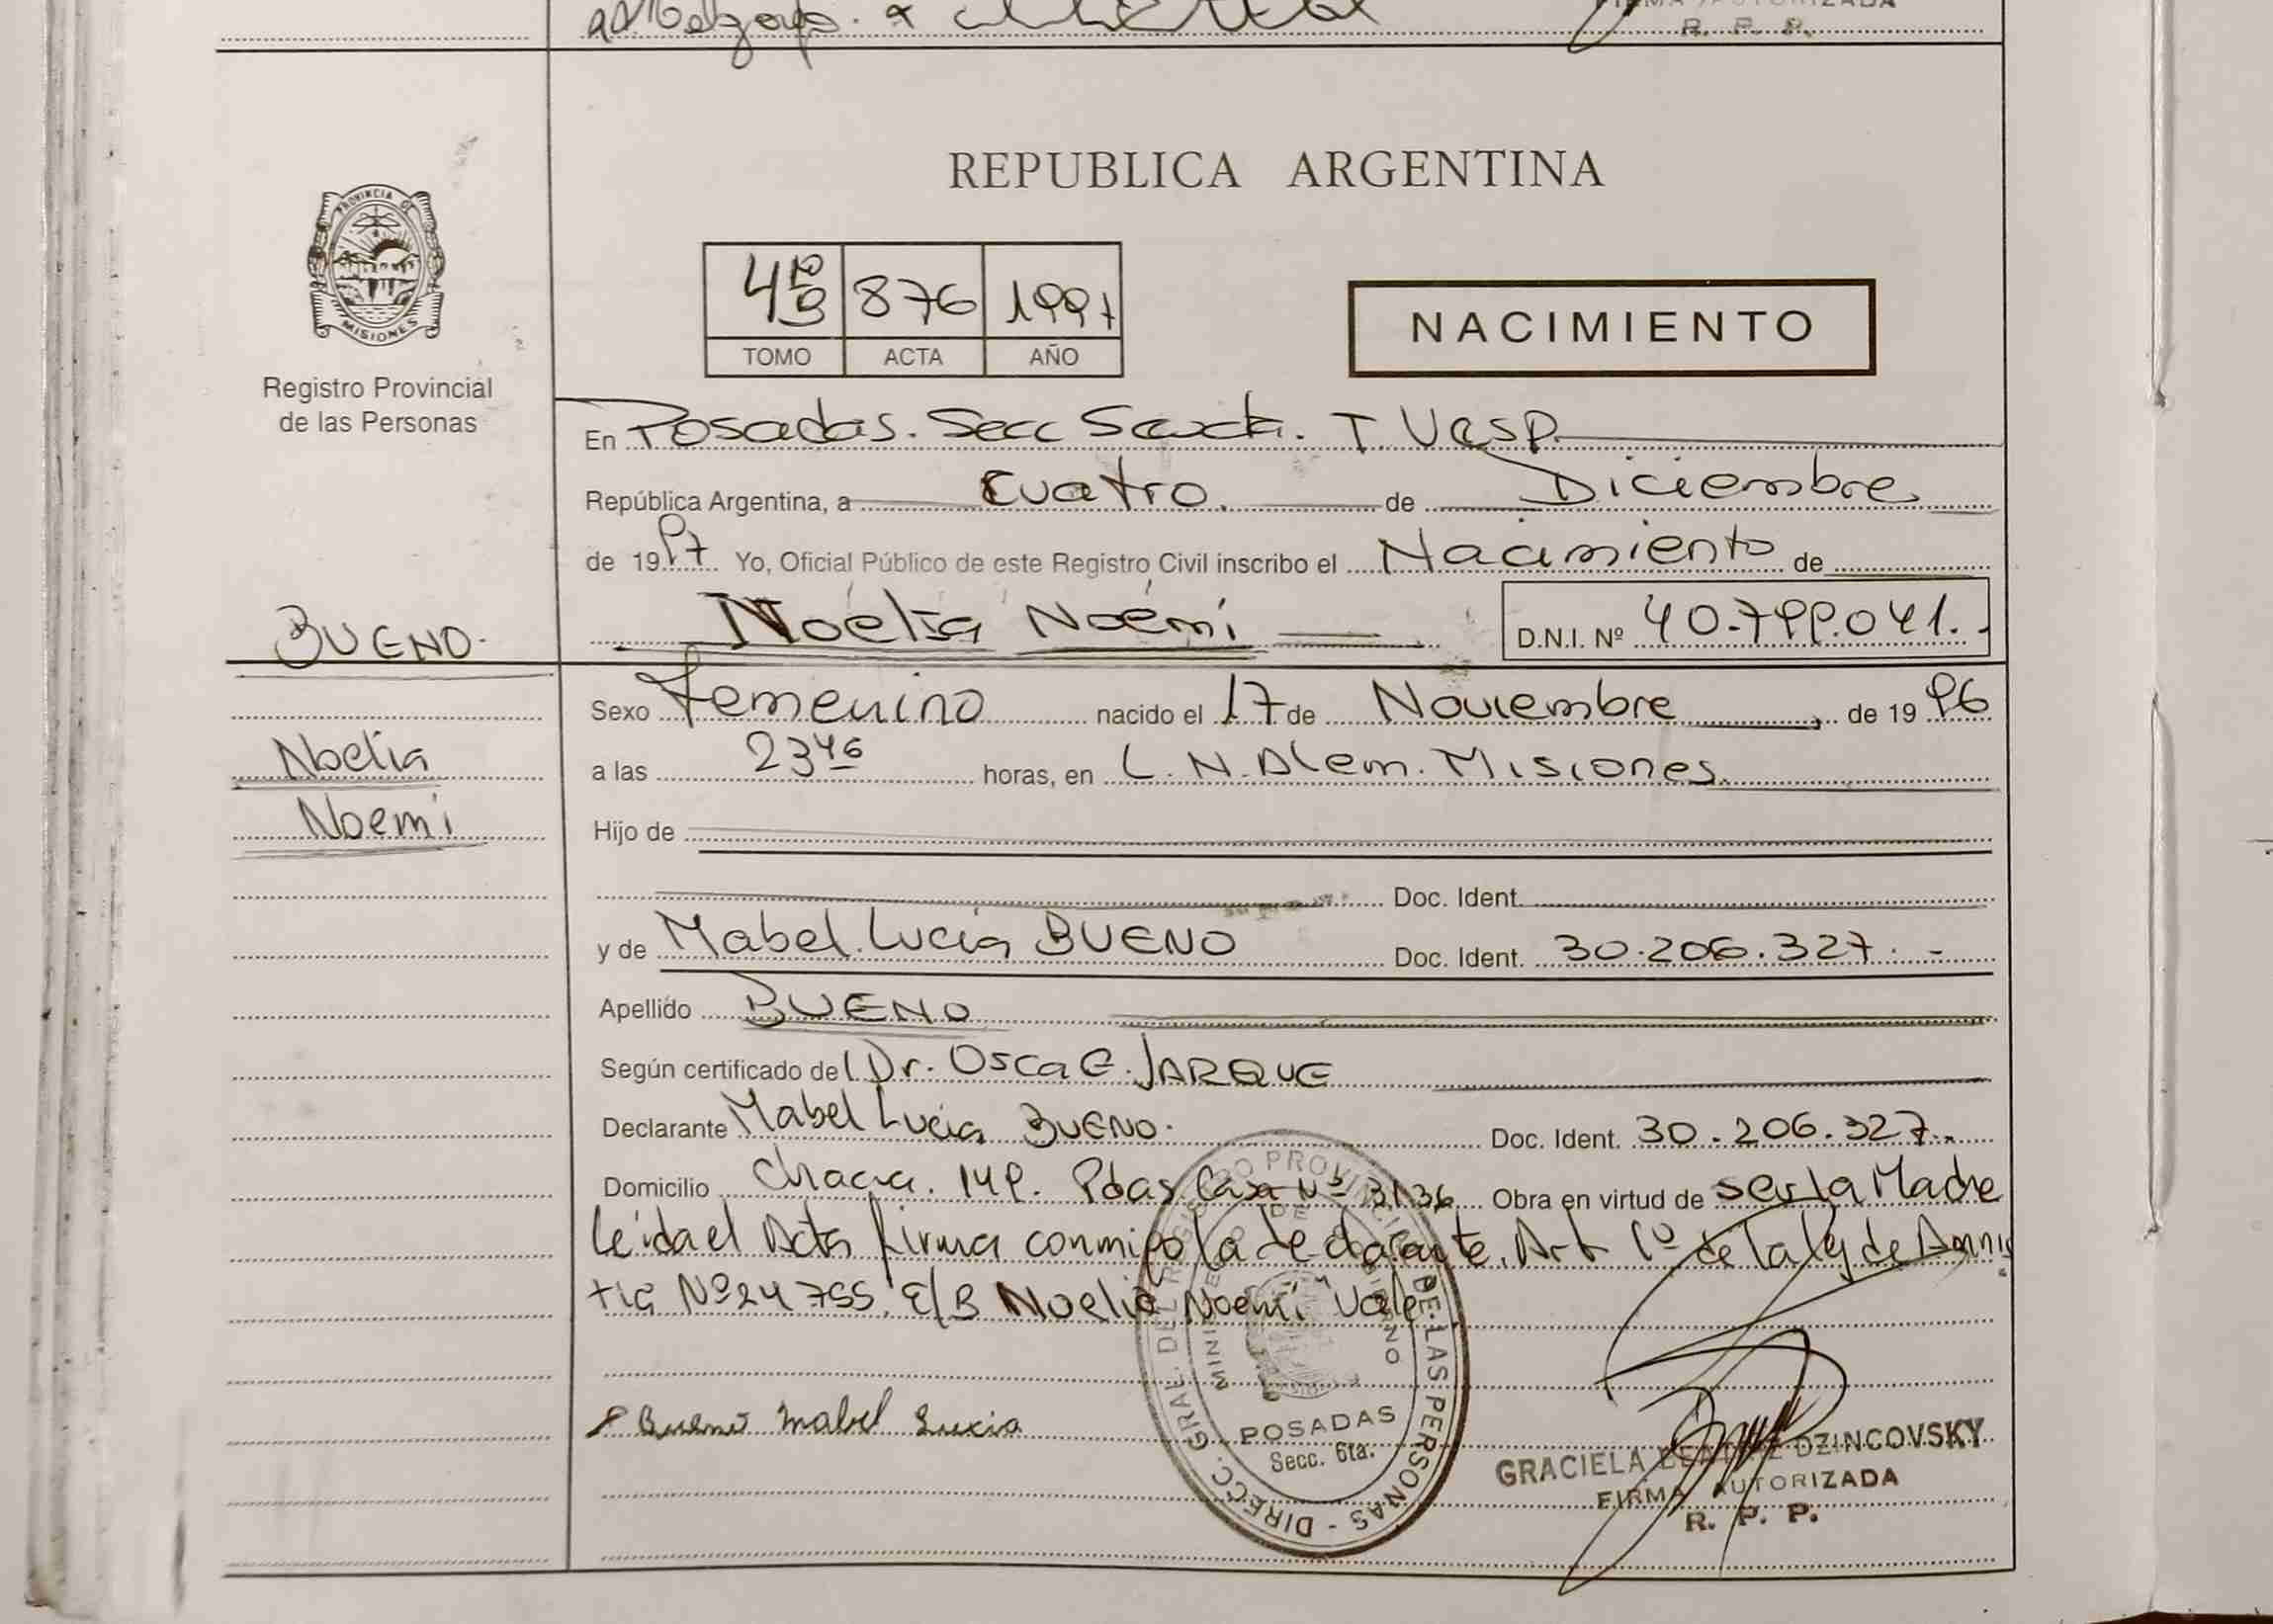 FIRMA AUTORIZADA
R. P. P.
REPUBLICA ARGENTINA
PROVINCIA DE
MISIONES
Registro Provincial
de las Personas
4to B 876 1997
TOMO ACTA AÑO
NACIMIENTO
En Posadas. Secc Sexta. T. Vesp.
República Argentina, a cuatro. de Diciembre
de 1997 Yo, Oficial Público de este Registro Civil inscribo el Nacimiento de
BUENO. Noelia Noemi D.N.I. Nº 40.799.041.-
Sexo Femenino nacido el 17 de Noviembre, de 1996
Noelia a las 23 46 horas, en L. N. Alem. Misiones.
Noemi Hijo de
Doc. Ident.
y de Mabel Lucia BUENO Doc. Ident. 30.206.327.-
Apellido BUENO
Según certificado del Dr. Oscar JARQUE
Declarante Mabel Lucia BUENO. Doc. Ident. 30.206.327.-
Domicilio Chacra. 149. Pdas. Casa Nº 3136 Obra en virtud de ser la Madre
Leida el Acta firma conmigo la declarante. Art 1º de la ley de Amnis
tia Nº 24 755. E/B Noelia Noemi Vale.
Bueno Mabel Lucia
DIRECC. GRAL. DEL REGISTRO PROVINCIAL DE LAS PERSONAS -
MINISTERIO DE GOBIERNO
POSADAS
Secc. 6ta.
GRACIELA BEATRIZ DZINCOVSKY
FIRMA AUTORIZADA
R. P. P.